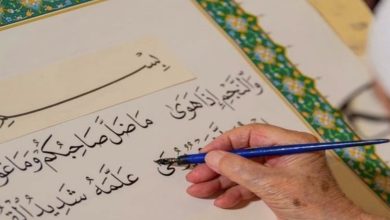 بِسْ
وَالنَّجْمِ إِذَا هَوَىٰ مَا ضَلَّ صَاحِبُكُمْ وَمَا غَوَ
يُوحَىٰ عَلَّمَهُ شَدِيدُ الْقُ